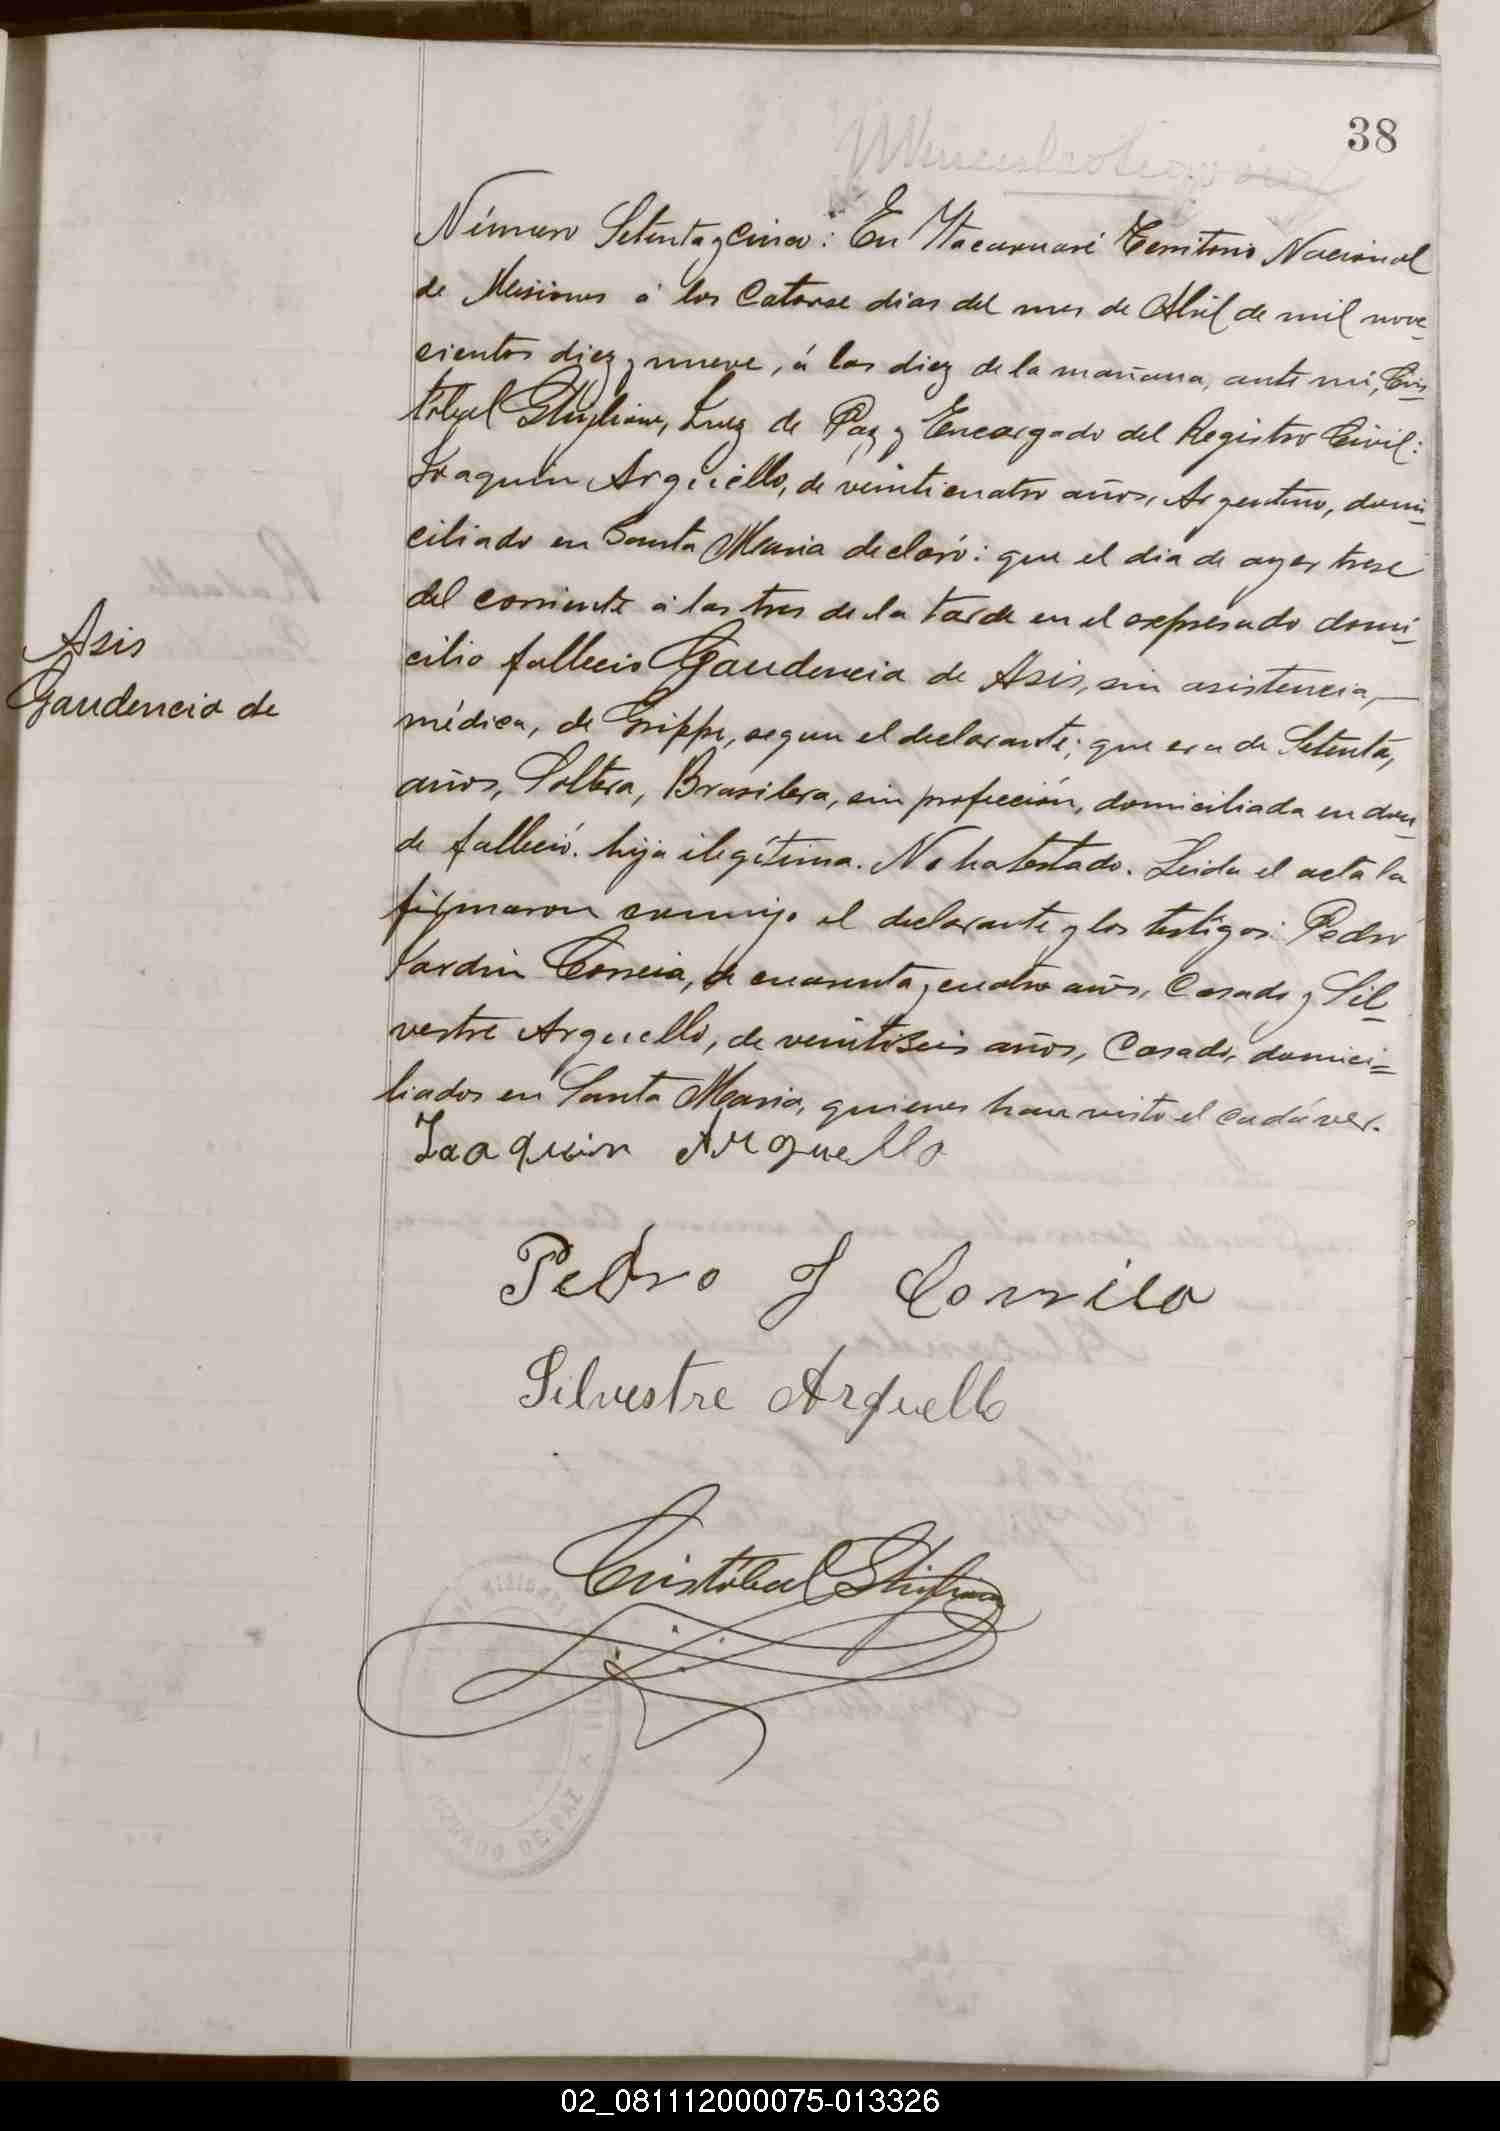 38
Número Setenta y Cinco: En Itacaruaré Territorio Nacional
de Misiones á los Catorse dias del mes de Abril de mil nove-
cientos diez y nueve, á las diez de la mañana, ante mi, Cris-
tóbal Ghiglione, Juez de Paz y Encargado del Registro Civil:
Joaquin Arguello, de veinticuatro años, Argentino, domi-
ciliado en Santa Maria declaró: que el dia de ayer trese
del corriente á las tres de la tarde en el expresado domi-
cilio fallecio Gaudencia de Asis, sin asistencia,
médica, de Grippe, segun el declarante; que era de Setenta,
años, Soltera, Brasilera, sin profección, domiciliada en don-
de falleció. hija ilegítima. No ha testado. Leida el acta la
firmaron conmigo el declarante y los testigos: Pedro
Jardin Correia, de cuarenta y cuatro años, Casado y Sil-
vestre Arguello, de veintiseis años, Casado, domici-
liados en Santa Maria, quienes han visto el cadáver.
Asis
Gaudencia de
Joaquin Arguello
Pedro J Correia
Silvestre Arguello
Cristóbal Ghiglione
02_081112000075-013326